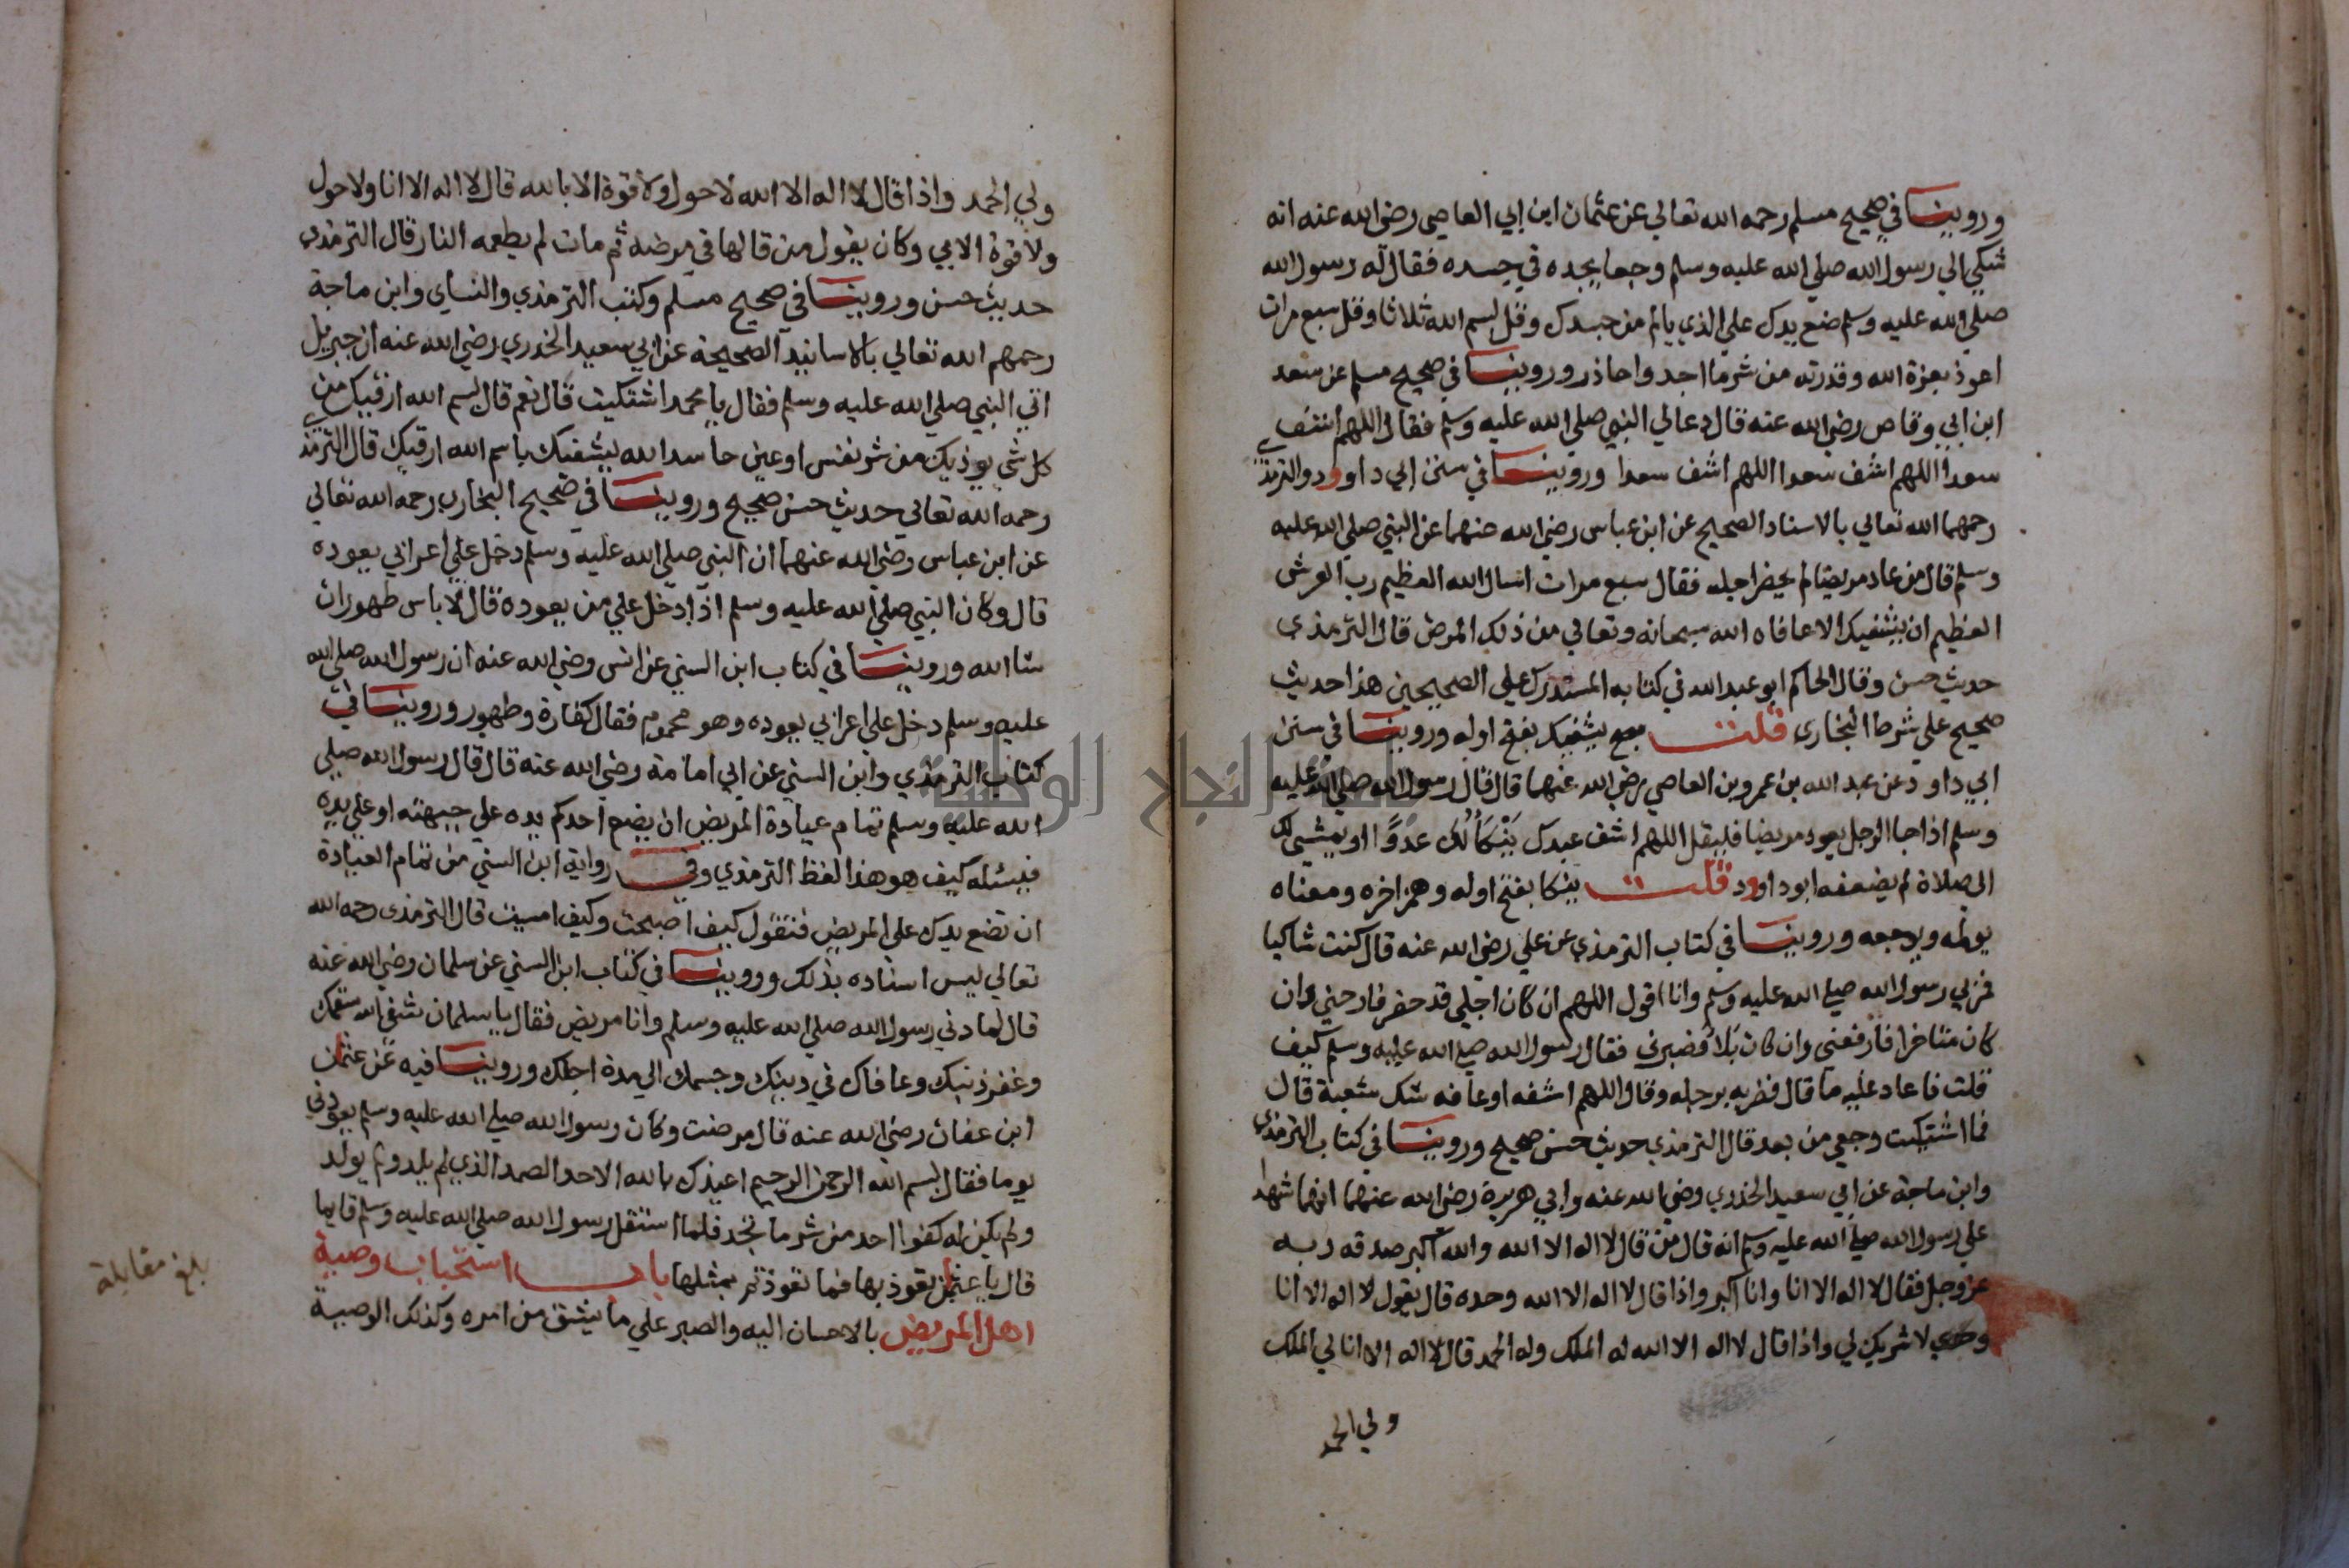 وروينا في صحيح مسلم رحمه الله تعالي عن عثمان ابن ابي العاصي رضي الله عنه انه
شكي الي رسول الله صلي الله عليه وسلم وجعا يجده في جسده فقال له رسول الله
صلي الله عليه وسلم ضع يدك علي الذي يالم من جسدك وقل بسم الله ثلاثا وقل سبع مرات
اعوذ بعزة الله وقدرته من شر ما اجد واحاذر وروينا في صحيح مسلم عن سعد
ابن ابي وقاص رضي الله عنه قال دعالي النبي صلي الله عليه وسلم فقال اللهم اشف
سعدا اللهم اشف سعدا اللهم اشف سعدا وروينا في سنن ابي داوود والترمذي
رحمهما الله تعالي بالاسناد الصحيح عن ابن عباس رضي الله عنهما عن النبي صلي الله عليه
وسلم قال من عاد مريضا لم يحضر اجله فقال سبع مرات اسال الله العظيم رب العرش
العظيم ان يشفيك الا عافاه الله سبحانه وتعالي من ذلك المرض قال الترمذي
حديث حسن وقال الحاكم ابو عبد الله في كتابه المستدرك علي الصحيحين هذا حديث
صحيح علي شرط البخاري قلت يشفيك بفتح اوله وروينا في سنن
ابي داود عن عبد الله بن عمرو بن العاصي رضي الله عنهما قال قال رسول الله صلي الله عليه
وسلم اذا جا الرجل يعود مريضا فليقل اللهم اشف عبدك يَنْكَأُ لَكَ عدوًا او يمشي لك
الي صلاة لم يضعفه ابو داوود قلت ينكا بفتح اوله وهمز اخره ومعناه
يولمه ويوجعه وروينا في كتاب الترمذي عن علي رضي الله عنه قال كنت شاكيا
فمر بي رسول الله صلي الله عليه وسلم وانا اقول اللهم ان كان اجلي قد حضر فارحني وان
كان متاخرا فارفعني وان كان بلاء فصبرني فقال رسول الله صلي الله عليه وسلم كيف
قلت فاعاد عليه ما قال فضربه برجله وقال اللهم اشفه او عافه شك شعبة قال
فما اشتكيت وجعي من بعد قال الترمذي حديث حسن صحيح وروينا في كتاب الترمذي
وابن ماجة عن ابي سعيد الخدري رضي الله عنه وابي هريرة رضي الله عنهما انهما شهدا
علي رسول الله صلي الله عليه وسلم انه قال من قال لا اله الا الله والله اكبر صدقه ربه
عز وجل فقال لا اله الا انا وانا اكبر واذا قال لا اله الا الله وحده قال يقول لا اله الا انا
وحدي لا شريك لي واذا قال لا اله الا الله له الملك وله الحمد قال لا اله الا انا لي الملك
ولي الحمد
ولي الحمد واذا قال لا اله الا الله لا حول ولا قوة الا بالله قال لا اله الا انا ولا حول
ولا قوة الا بي وكان يقول من قالها في مرضه ثم مات لم يطعمه النار قال الترمذي
حديث حسن وروينا في صحيح مسلم وكتب الترمذي والنساي وابن ماجة
رحمهم الله تعالي بالاسانيد الصحيحة عن ابي سعيد الخدري رضي الله عنه ان جبريل
اتي النبي صلي الله عليه وسلم فقال يا محمد اشتكيت قال نعم قال بسم الله ارقيك من
كل شي يوذيك من شر نفس او عين حاسد الله يشفيك باسم الله ارقيك قال الترمذي
رحمه الله تعالي حديث حسن صحيح وروينا في صحيح البخاري رحمه الله تعالي
عن ابن عباس رضي الله عنهما ان النبي صلي الله عليه وسلم دخل علي اعرابي يعوده
قال وكان النبي صلي الله عليه وسلم اذا دخل علي من يعوده قال لا باس طهور ان
شا الله وروينا في كتاب ابن السني عن انس رضي الله عنه ان رسول الله صلي الله
عليه وسلم دخل علي اعرابي يعوده وهو محموم فقال كفارة وطهور وروينا في
كتاب الترمذي وابن السني عن ابي امامة رضي الله عنه قال قال رسول الله صلي
الله عليه وسلم تمام عيادة المريض ان يضع احدكم يده علي جبهته او علي يده
فيسئله كيف هو هذا لفظ الترمذي وفي رواية ابن السني من تمام العيادة
ان تضع يدك علي المريض فتقول كيف اصبحت وكيف امسيت قال الترمذي رحمه الله
تعالي ليس اسناده بذلك وروينا في كتاب ابن السني عن سلمان رضي الله عنه
قال عادني رسول الله صلي الله عليه وسلم وانا مريض فقال يا سلمان شفي الله سقمك
وغفر ذنبك وعافاك في دينك وجسمك الي مدة اجلك وروينا فيه عن عثمان
ابن عفان رضي الله عنه قال مرضت وكان رسول الله صلي الله عليه وسلم يعودني
يوما فقال بسم الله الرحمن الرحيم اعيذك بالله الاحد الصمد الذي لم يلد ولم يولد
ولم يكن له كفوا احد من شر ما تجد فلما استقل رسول الله صلي الله عليه وسلم قايما
قال يا عثمان تعوذ بها فما تعوذتم بمثلها باب استحباب وصية
اهل المريض بالاحسان اليه والصبر علي ما يشق من امره وكذلك الوصية
بلغ مقابلة
جامعة النجاح الوطنية